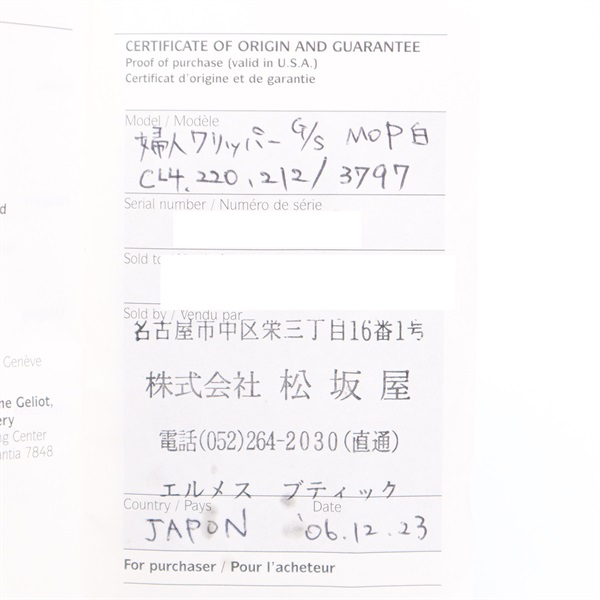 CERTIFICATE OF ORIGIN AND GUARANTEE
Proof of purchase (valid in U.S.A.)
Certificat d'origine et de garantie
Model / Modèle
婦人クリッパー G/S MOP白
CL4.220.212/3797
Serial number / Numéro de série
Sold to
Sold by / Vendu par
名古屋市中区栄三丁目16番1号
株式会社 松坂屋
電話(052)264-2030(直通)
エルメス ブティック
Country / Pays Date
JAPON '06.12.23
For purchaser / Pour l'acheteur
d
Genève
ne Geliot,
ery
ng Center
antia 7848